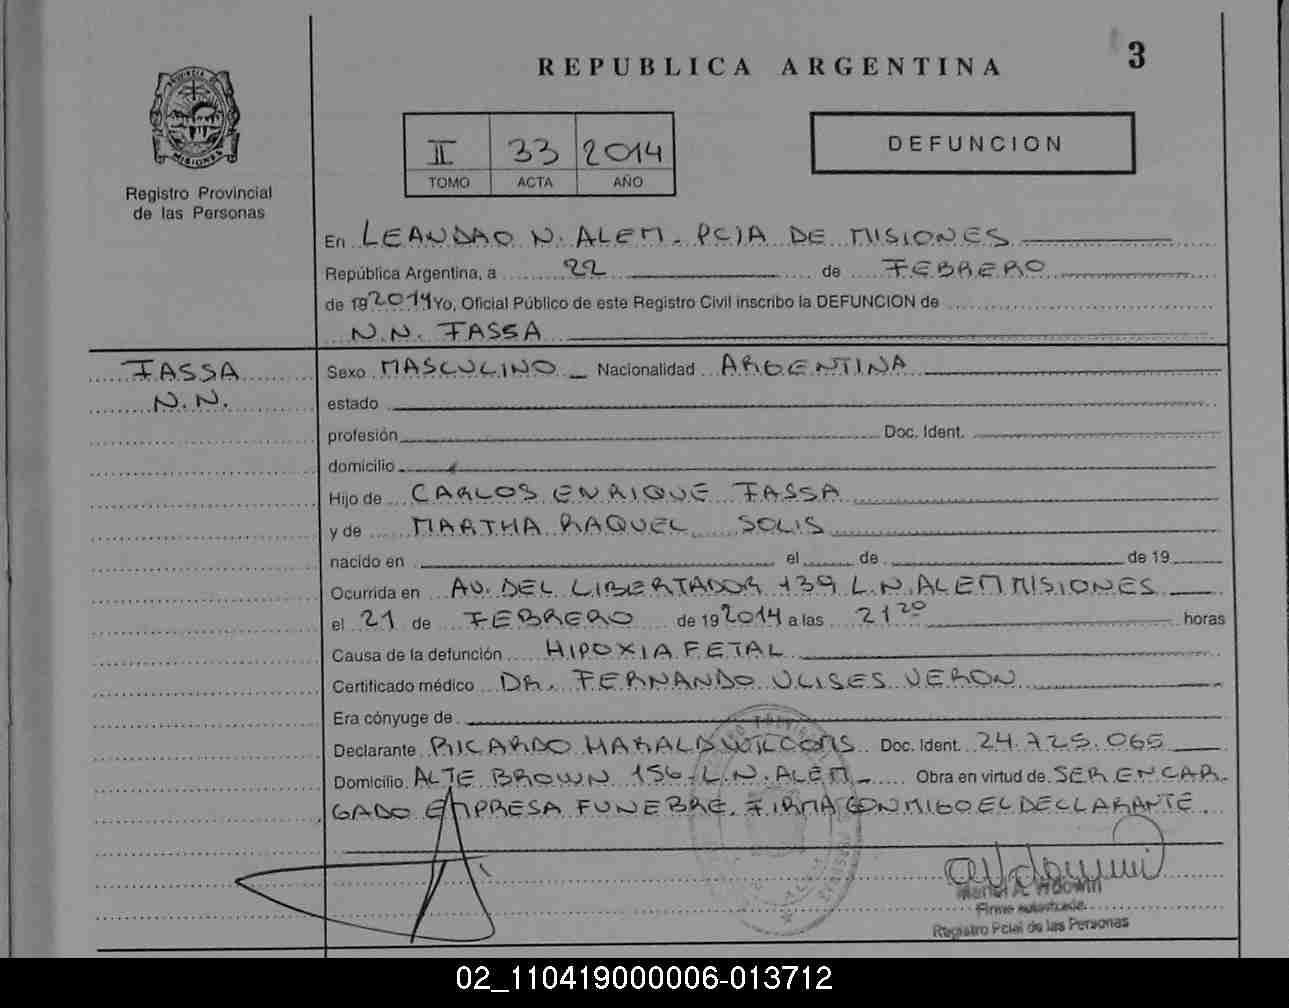 REPUBLICA ARGENTINA
3
PROVINCIA DE
MISIONES
Registro Provincial
de las Personas
II 33 2014
TOMO ACTA AÑO
DEFUNCION
En LEANDRO N. ALEM. PCIA DE MISIONES
República Argentina, a 22 de FEBRERO
de 19 2014 Yo, Oficial Público de este Registro Civil inscribo la DEFUNCION de
N.N. FASSA
FASSA
N.N.
Sexo MASCULINO Nacionalidad ARGENTINA
estado
profesión Doc. Ident.
domicilio
Hijo de CARLOS ENRIQUE FASSA
y de MARTHA RAQUEL SOLIS
nacido en el de de 19
Ocurrida en AV. DEL LIBERTADOR 139 L.N.ALEM MISIONES
el 21 de FEBRERO de 19 2014 a las 21 20 horas
Causa de la defunción HIPOXIA FETAL
Certificado médico DR. FERNANDO ULISES VERON
Era cónyuge de
Declarante RICARDO HARALD Doc. Ident. 24.725.065
Domicilio ALTE BROWN 156-L.N.ALEM Obra en virtud de SER ENCAR-
GADO EMPRESA FUNEBRE. FIRMA CONMIGO EL DECLARANTE.
Registro Pcial de las Personas
02_110419000006-013712